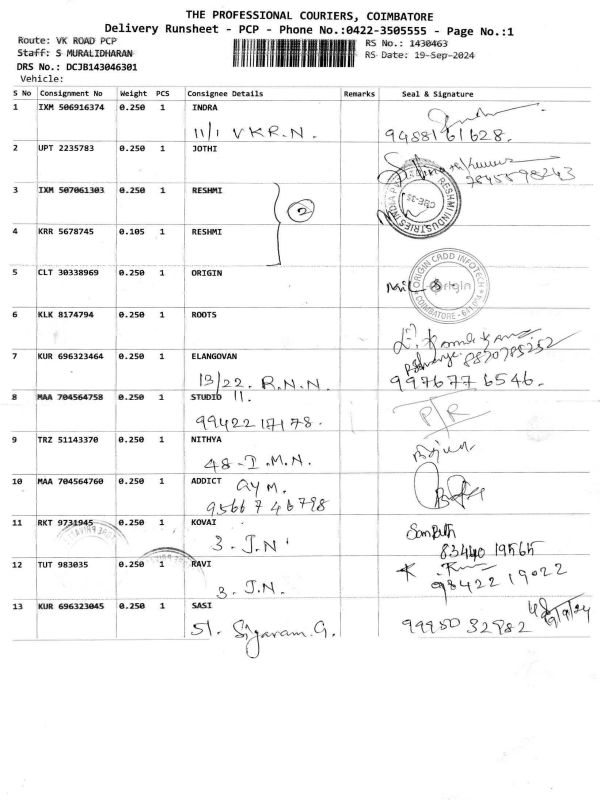 THE PROFESSIONAL COURIERS, COIMBATORE
Delivery Runsheet - PCP - Phone No.:0422-3505555 - Page No.:1
Route: VK ROAD PCP
RS No.: 1430463
Staff: S MURALIDHARAN
RS Date: 19-Sep-2024
DRS No.: DCJB143046301
Vehicle:
S No Consignment No Weight PCS Consignee Details Remarks Seal & Signature
1 IXM 506916374 0.250 1 INDRA
11/1 V K R. N. 94881 61628.
2 UPT 2235783 0.250 1 JOTHI
3 IXM 507061303 0.250 1 RESHMI
2
RESHMI INDUSTRIES INDIA
CBE-35
4 KRR 5678745 0.105 1 RESHMI
5 CLT 30338969 0.250 1 ORIGIN
ORIGIN CADD INFOTECH
Origin
COIMBATORE
6 KLK 8174794 0.250 1 ROOTS
8870785252
7 KUR 696323464 0.250 1 ELANGOVAN
19/22. R.N.N. 997677 6546.
8 MAA 704564758 0.250 1 STUDIO 11.
99422 17178. P/R
9 TRZ 51143370 0.250 1 NITHYA
48-I.M.N.
10 MAA 704564760 0.250 1 ADDICT
9566746798
11 RKT 9731945 0.250 1 KOVAI
3. J.N 83440 19565
12 TUT 983035 0.250 1 RAVI
3. J.N. 98422 19022
13 KUR 696323045 0.250 1 SASI
51. 99950 32982